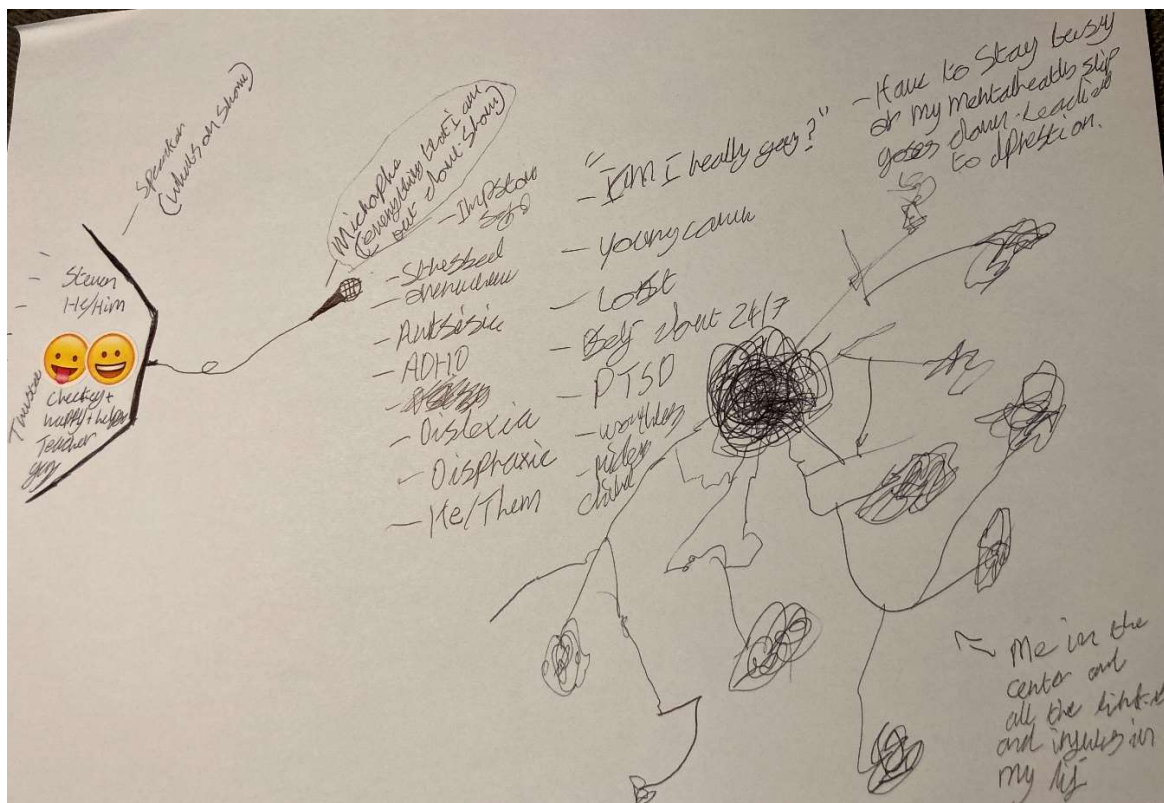 - Speaker
(whats on show)
Steven
He/Him
Twitter
cheekey +
happy + helper
Teacher
guy
- Microphe
(everything that I am
out about show)
- Impstow
- Stressed
- Autisic
- ADHD
- Dislexia
- Dispraxic
- He/Them
"
- I am I really gay?"
- Young carer
- Lost
- Self dout 24/7
- PTSD
- worthless
- child
- Have to Stay busy
or my mentaheath slip
goes down leading
to dprestion.
Me in the
center and
all the
and in
my lif